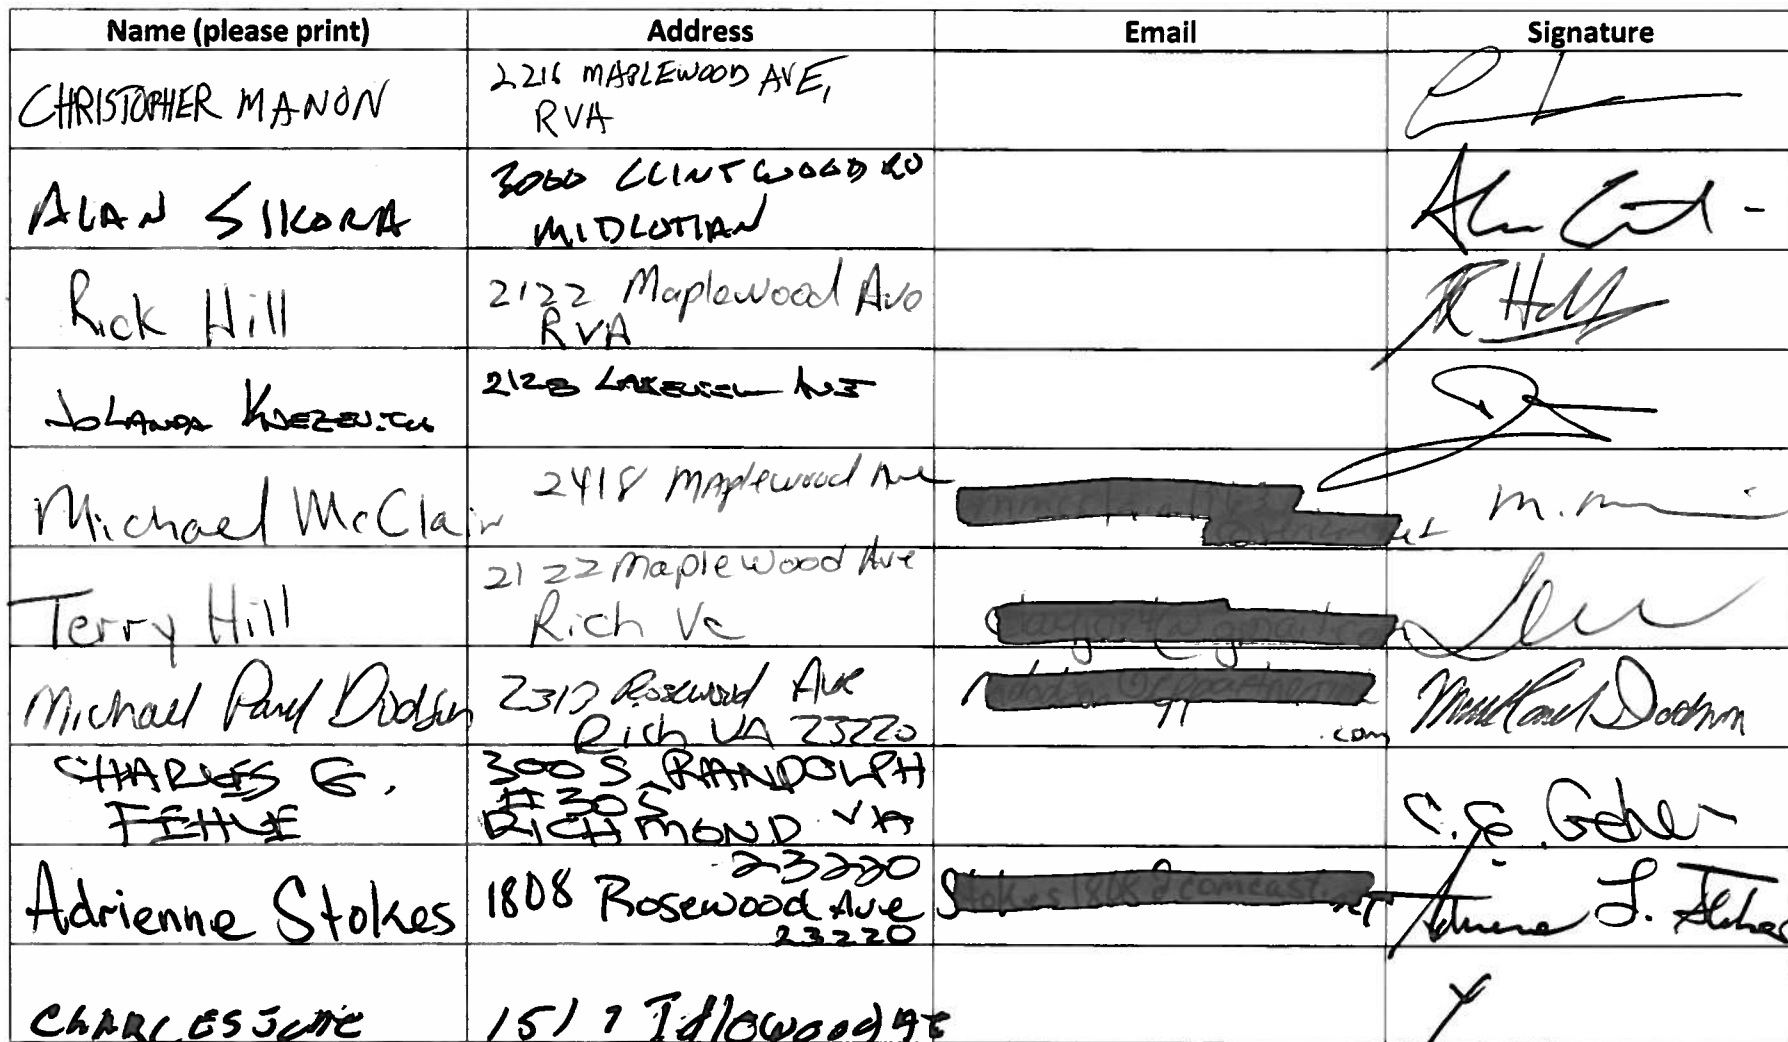 Name (please print) Address Email Signature
CHRISTOPHER MANON 2216 MAPLEWOOD AVE,
RVA
ALAN SIKORA 3000 CLINTWOOD RD
MIDLOTIAN
Rick Hill 2122 Maplewood Ave
RVA
R Hill
JOLANDA KNEZEVICH 2128 LAKEVIEW AVE
Michael McClain 2418 Maplewood Ave
M. M
Terry Hill 2122 Maplewood Ave
Rich Va
Michael Paul Dodson 2313 Rosewood Ave
Rich VA 23220
.com
Michael Paul Dodson
CHARLES G. 300 S. RANDOLPH
#305
RICHMOND VA
23220
C. G.
Adrienne Stokes 1808 Rosewood Ave
23220
Adrienne L. Stokes
CHARLES 1517 Idlowood Ave